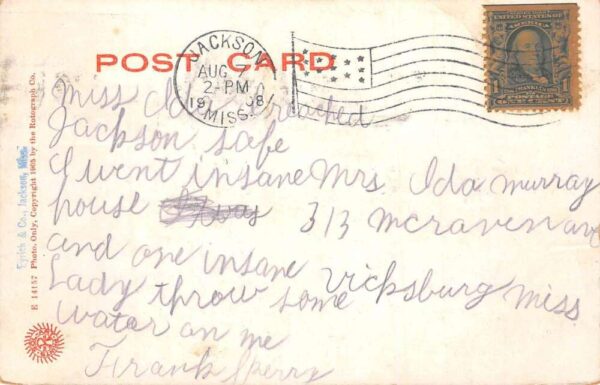 POST CARD
JACKSON
AUG 7
2-PM
1908
MISS.
UNITED STATES OF AMERICA
1
Miss Ida I reached
Jackson safe
I went insane Mrs. Ida Murray
house was 313 McRaven ave
and one insane Vicksburg Miss
Lady throw some
water on me
Frank Sperry
Tyrich & Co., Jackson, Miss.
E 14157 Photo. Only, Copyright 1905 by the Rotograph Co.